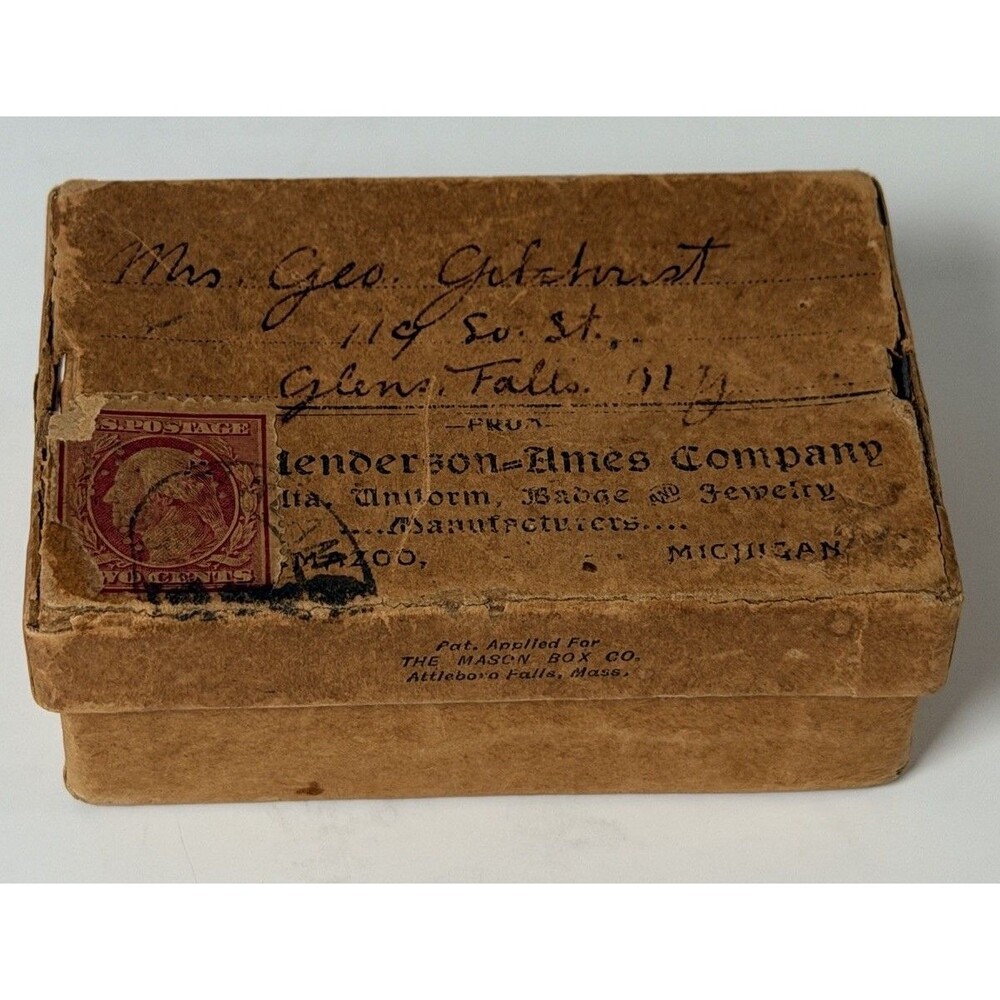 Mrs. Geo. Gilchrist
119 So. St.,
Glens Falls. N.Y
—FROM—
Henderson-Ames Company
lia, Uniform, Badge AND Jewelry
....Manufacturers....
MAZOO, MICHIGAN
S. POSTAGE
WO CENTS
Pat. Applied For
THE MASON BOX CO.
Attleboro Falls, Mass.